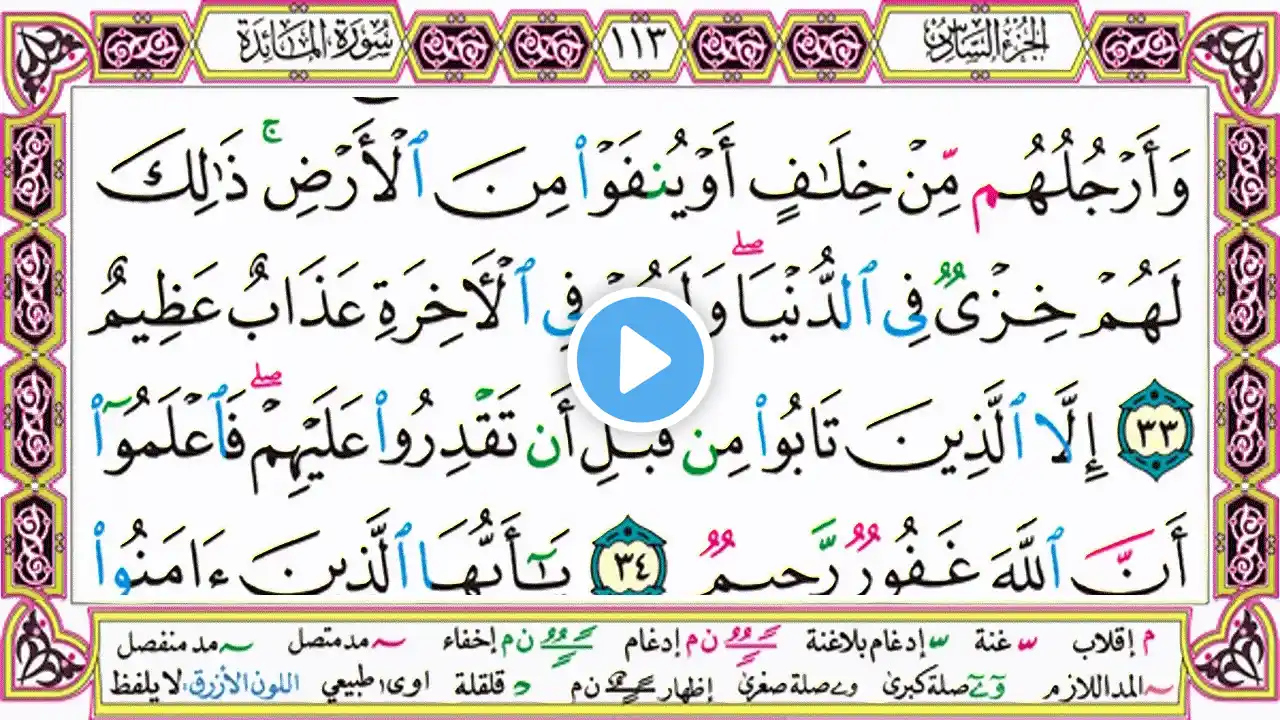 الجزء السادس
١١٣
سورة المائدة
وَأَرْجُلُهُم مِّنْ خِلَٰفٍ أَوْ يُنفَوْا۟ مِنَ ٱلْأَرْضِ ۚ ذَٰلِكَ
لَهُمْ خِزْىٌ فِى ٱلدُّنْيَا ۖ فِى ٱلْءَاخِرَةِ عَذَابٌ عَظِيمٌ
٣٣ إِلَّا ٱلَّذِينَ تَابُوا۟ مِن قَبْلِ أَن تَقْدِرُوا۟ عَلَيْهِمْ ۖ فَٱعْلَمُوٓا۟
أَنَّ ٱللَّهَ غَفُورٌ رَّحِيمٌ ٣٤ يَٰٓأَيُّهَا ٱلَّذِينَ ءَامَنُوا۟
م إقلاب ّ غنة ّ إدغام بلاغنة ن م إدغام ن م إخفاء ~ مد متصل ~ مد منفصل
~ المد اللازم صلة كبرى و ے صلة صغرى إظهار ن م د قلقلة اوى طبيعي اللون الأزرق: لا يلفظ